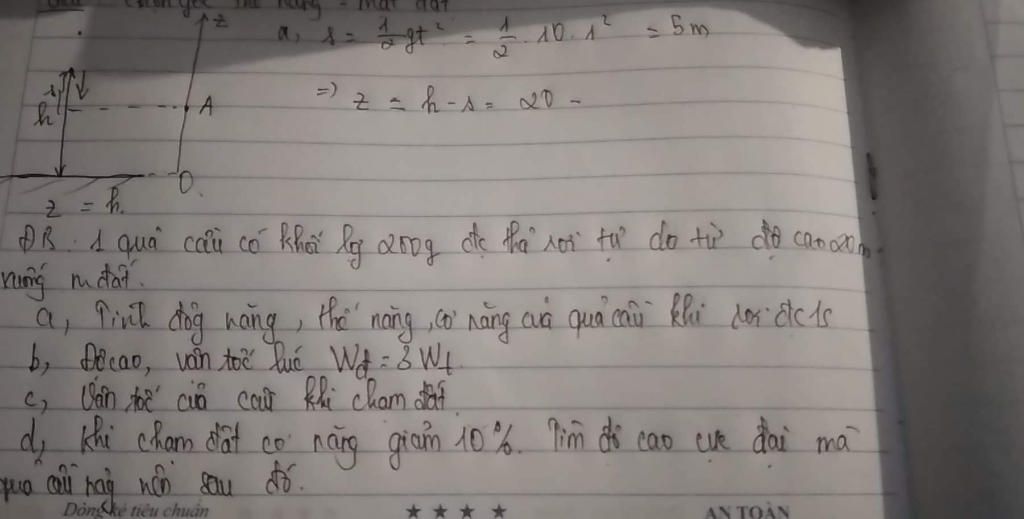 chọn gốc thế năng = mặt đất
z
a, s = 1/2 gt² = 1/2 . 10 . 1² = 5m
s
h
A
=> z = h - s = 20 -
O
z = h
ĐB . 1 quả cầu có khối lg 200g đc thả rơi tự do từ độ cao 20m
xuống mđất.
a, Tính động năng, thế năng, cơ năng của quả cầu khi rơi đc 1s
b, Độ cao, vân tốc lúc Wđ = 3Wt
c, Vân tốc của cầu khi chạm đất
d, Khi chạm đất cơ năng giảm 10%. Tìm độ cao cực đại mà
quả cầu nảy nên sau đó.
Dòng kẻ tiêu chuẩn ★ ★ ★ ★ AN TOÀN